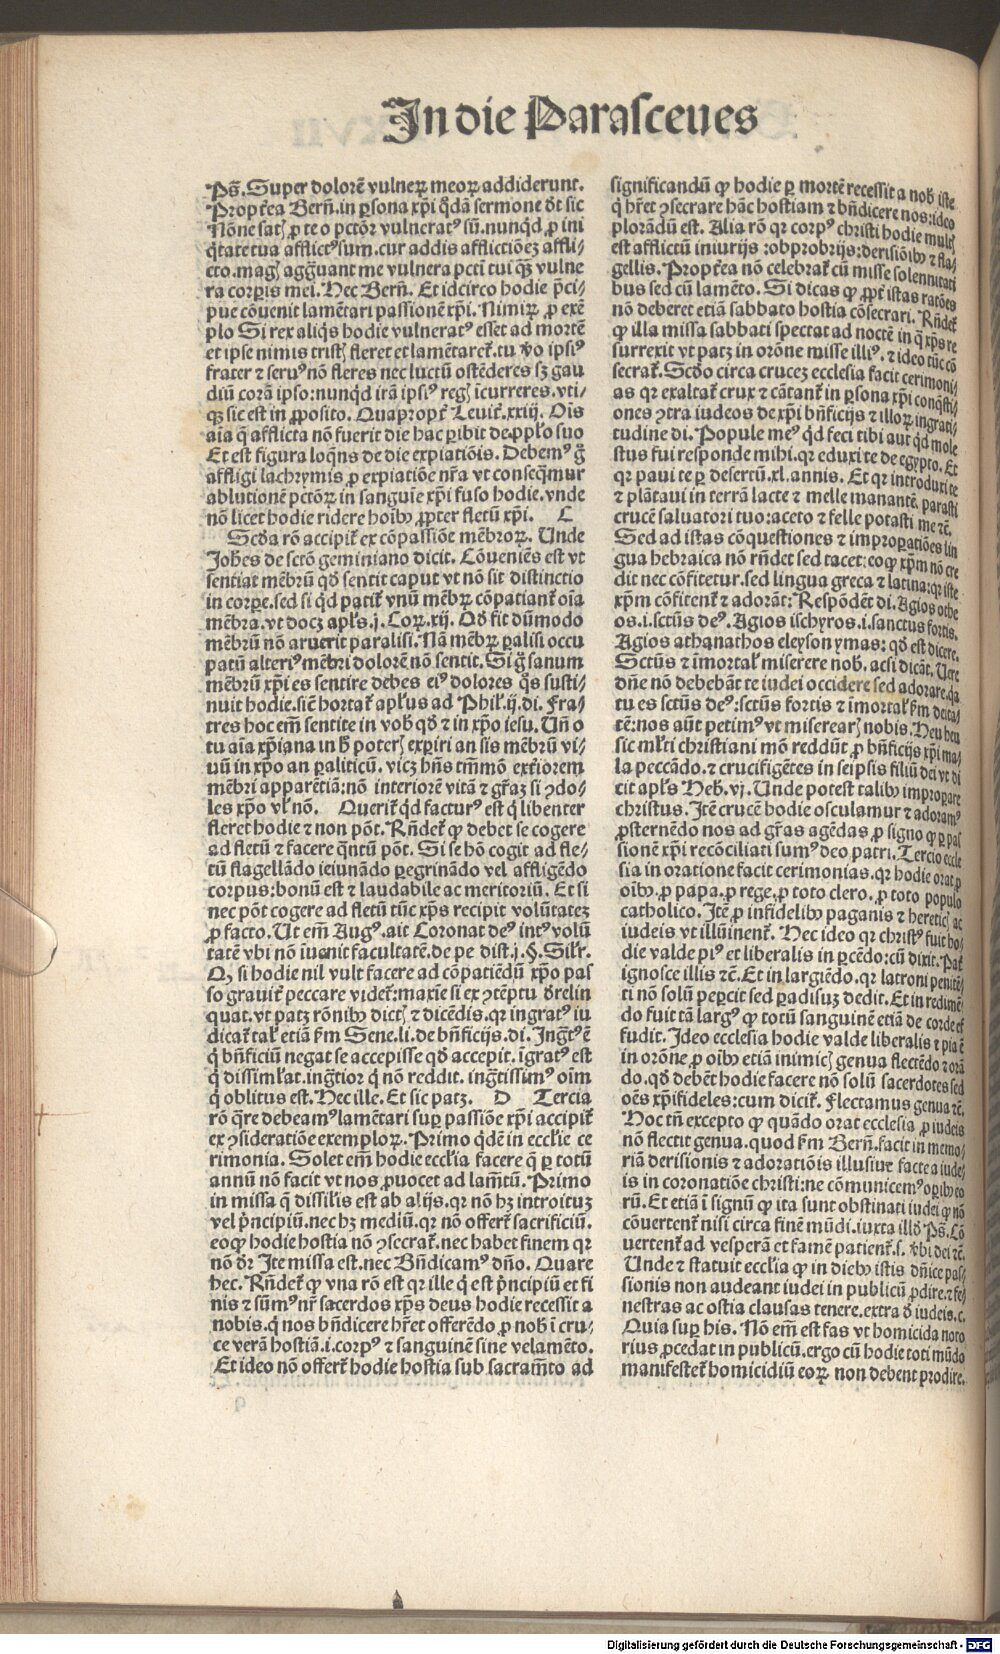 In die Parasceues
Ps̄. Super dolorē vulneꝝ meoꝝ addiderunt.
Propt̄ea Bern̄. in ꝑsona xp̄i q̄dā sermone d̄t sic
Nōne satꝭ ꝓ te o pctōr vulneratꝰ sū. nunqͥd ꝓ ini
q̄tate tua afflictꝰ sum. cur addis afflictiōeꝫ affli⸗
cto. magꝭ aggͣuant me vulnera pctī tui qͣꝫ vulne
ra corꝑis mei. Hec Bern̄. Et idcirco hodie p̄ci⸗
pue cōuenit lamētari passionē xp̄i. Nimiꝝ ꝓ exē
plo Si rex aliqͥs hodie vulneratꝰ esset ad mortē
et ipse nimis tristꝭ fleret et lamētaret̄. tu v̄o ipsiꝰ
frater ⁊ seruꝰ nō fleres nec luctū ostēderes sꝫ gau
diū corā ipso: nunqͥd irā ipsiꝰ regꝭ īcurreres. vti⸗
qꝫ sic est in ꝓposito. Quapropt̄ Leuit̄. xxiij. Oīs
aīa q̄ afflicta nō fuerit die hac ꝑibit de pp̄lo suo
Et est figura loqn̄s de die expiatiōis. Debemꝰ gͦ
affligi lachrymis ꝓ expiatiōe nr̄a vt conseqͣmur
ablutionē pctōꝝ in sanguīe xp̄i fuso hodie. vnde
nō licet hodie ridere hoībꝰ ꝓpter fletū xp̄i. C
Scd̄a rō accipit̄ ex cōpassiōe mēbroꝝ. Unde
Johēs de sctō geminiano dicit. Cōueniēs est vt
sentiat mēbrū qd̄ sentit caput vt nō sit distinctio
in corꝑe. sed si qͥd patit̄ vnū mēbꝝ cōpatiant̄ oīa
mēbra. vt docꝫ apl̄s. j. Coꝝ. xij. Qd̄ fit dūmodo
mēbrū nō aruerit paralisi. Nā mēbꝝ ꝑalisi occu
patū alteriꝰ mēbri dolorē nō sentit. Si gͦ sanum
mēbrū xp̄i es sentire debes eiꝰ dolores qͦs susti⸗
nuit hodie. sic̄ hortat̄ apl̄us ad Phil̄. ij. di. Fra⸗
tres hoc em̄ sentite in vobꝭ qd̄ ⁊ in xp̄o iesu. Un̄ o
tu aīa xp̄iana in hͦ poterꝭ exꝑiri an sis mēbrū vi⸗
uū in xp̄o an ꝑaliticū. vicꝫ hn̄s tm̄mō ext̄iorem
mēbri apparētiā: nō interiorē vitā ⁊ gr̄aꝫ si ꝯdo⸗
les xp̄o vl̄ nō. Querit̄ qͥd facturꝰ est qͥ libenter
fleret hodie ⁊ non pōt. Rn̄det̄ ꝙ debet se cogere
ad fletū ⁊ facere qͣntū pōt. Si se hō cogit ad fle⸗
tū flagellādo ieiunādo ꝑegrinādo vel affligēdo
corpus: bonū est ⁊ laudabile ac meritoriū. Et si
nec pōt cogere ad fletū tūc xp̄s recipit volūtateꝫ
ꝓ facto. Ut em̄ Augꝰ. ait Coronat deꝰ intꝰ volū
tatē vbi nō īuenit facultatē. de pe. dist. j. §. Sil̄r.
Q, si hodie nil vult facere ad cōpatiēdū xp̄o pas
so grauit̄ peccare videt̄: maxīe si ex ꝯtēptu d̄relin
quat. vt patꝫ rōnibꝰ dictꝭ ⁊ dicēdis. qꝛ ingratꝰ iu
dicat̄ tal̄ etiā ẜm Sene. li. de bn̄ficijs. di. Ingͣtꝰ ē
qͥ bn̄ficiū negat se accepisse qd̄ accepit. īgratꝰ est
qͥ dissiml̄at. ingͣtior qͥ nō reddit. ingͣtissimꝰ oīm
qͥ oblitus est. Hec ille. Et sic patꝫ. D Tercia
rō qͣre debeamꝰ lamētari suꝑ passiōe xp̄i accipit̄
ex ꝯsideratiōe exemploꝝ. Primo qͥdē in eccl̄ie ce
rimonia. Solet em̄ hodie eccl̄ia facere q̄ ꝑ totū
annū nō facit vt nos ꝓuocet ad lam̄tū. Primo
in missa q̄ dissīlis est ab alijs. qꝛ nō hꝫ introituꝫ
vel pͥncipiū. nec hꝫ mediū. qꝛ nō offert̄ sacrificiū.
eo ꝙ hodie hostia nō ꝯsecrat̄. nec habet finem qꝛ
nō dr̄ Ite missa est. nec Bn̄dicamꝰ dn̄o. Quare
hec. Rn̄det̄ ꝙ vna rō est qꝛ ille qͥ est pͥncipiū et fi
nis ⁊ sūmꝰ nr̄ sacerdos xp̄s deus hodie recessit a
nobis. qͥ nos bn̄dicere hr̄et offerēdo ꝓ nobꝭ ī cru⸗
ce verā hostiā. i. corpꝰ ⁊ sanguinē sine velamēto.
Et ideo nō offert̄ hodie hostia sub sacram̄to ad
significandū ꝙ hodie ꝑ mortē recessit a nobꝭ iste
qͥ hr̄et ꝯsecrare hāc hostiam ⁊ bn̄dicere nos: ideo
plorandū est. Alia rō qꝛ corpꝰ christi hodie multꝭ
est afflictū iniurijs: obprobrijs: derisiōibꝰ ⁊ fla⸗
gellis. Propt̄ea nō celebrat̄ cū misse solennitati
bus sed cū lamēto. Si dicas ꝙ ꝓpt̄ istas ratōes
nō deberet etiā sabbato hostia cōsecrari. Rn̄det̄
ꝙ illa missa sabbati spectat ad noctē in q̄ xp̄s re
surrexit vt patꝫ in orōne misse illiꝰ. ⁊ ideo tūc cō
secrat̄. Scd̄o circa cruceꝫ ecclesia facit cerimoni⸗
as qꝛ exaltat̄ crux ⁊ cātant̄ in ꝑsona xp̄i conqͣsti⸗
ones ꝯtra iudeos de xp̄i bn̄ficijs ⁊ illoꝝ ingrati⸗
tudine di. Popule meꝰ qͥd feci tibi aut qͥd mole
stus fui responde mihi. qꝛ eduxi te de egypto. Et
qꝛ paui te ꝑ desertū. xl. annis. Et qꝛ introduxi te
⁊ plātaui in terrā lacte ⁊ melle manantē. parasti
crucē saluatori tuo: aceto ⁊ felle potasti me ⁊c̄.
Sed ad istas cōquestiones ⁊ improꝑatiōes lin
gua hebraica nō rn̄det sed tacet: eo ꝙ xp̄m nō cre
dit nec cōfitetur. sed lingua greca ⁊ latina: qꝛ iste
xp̄m cōfitent̄ ⁊ adorāt: Respōdēt di. Agios othe
os. i. sctūs deꝰ. Agios ischyros. i. sanctus fortis.
Agios athanathos eleyson ymas: qd̄ est dicere.
Sctūs ⁊ īmortal̄ miserere nobꝭ. acsi dicāt. Uere
dn̄e nō debebāt te iudei occidere sed adorare. qꝛ
tu es sctūs deꝰ: sctūs fortis ⁊ īmortal̄ ẜm deita⸗
tē: nos aūt petimꝰ vt misereaꝝ nobis. Heu heu
sic ml̄ti christiani mō reddūt ꝓ bn̄ficijs xp̄i ma⸗
la peccādo. ⁊ crucifigētes in seipsis filiū dei vt di
cit apl̄s Heb̄. vj. Unde potest talibꝰ improꝑare
christus. Itē crucē hodie osculamur ⁊ adoramꝰ
ꝓsternēdo nos ad gr̄as agēdas ꝓ signo ꝙ ꝑ pas
sionē xp̄i recōciliati sumꝰ deo patri. Tercio eccle
sia in oratione facit cerimonias. qꝛ hodie orat ꝓ
oībꝰ. ꝓ papa. ꝓ rege. ꝓ toto clero. ꝓ toto populo
catholico. Itē ꝓ infidelibꝰ paganis ⁊ hereticꝭ ac
iudeis vt illūinent̄. Hec ideo qꝛ christꝰ fuit ho⸗
die valde piꝰ et liberalis in ꝑcēdo: cū dixit. Pat̄
ignosce illis ⁊c̄. Et in largiēdo. qꝛ latroni penitē⸗
ti nō solū peꝑcit sed ꝑadisuꝫ dedit. Et in redimē
do fuit tā largꝰ ꝙ totū sanguinē etiā de corde ef
fudit. Ideo ecclesia hodie valde liberalis ⁊ pia ē
in orōne ꝓ oībꝰ etiā inimicꝭ genua flectēdo ⁊ orā
do. qd̄ debēt hodie facere nō solū sacerdotes sed
oēs xp̄ifideles: cum dicit̄. Flectamus genua ⁊c̄.
Hoc tn̄ excepto ꝙ quādo orat ecclesia ꝓ iudeis
nō flectit genua. quod ẜm Bern̄. facit in memo⸗
riā derisionis ⁊ adoratiōis illusiue facte a iude⸗
is in coronatiōe christi: ne cōmunicemꝰ oꝑibꝰ eo
rū. Et etiā ī signū ꝙ ita sunt obstinati iudei ꝙ nō
cōuertent̄ nisi circa finē mūdi. iuxta illd̄ Ps̄. Cō
uertent̄ ad vesperā et famē patient̄. s. v̄bi dei ⁊c̄.
Unde ⁊ statuit eccl̄ia ꝙ in diebꝰ istis dn̄ice pas⸗
sionis non audeant iudei in publicū ꝓdire. ⁊ fe⸗
nestras ac ostia clausas tenere. extra d̄ iudeis. c.
Quia suꝑ his. Nō em̄ est fas vt homicida noto
rius ꝓcedat in publicū. ergo cū hodie toti mūdo
manifestet̄ homicidiū eoꝝ non debent prodire.
Digitalisierung gefördert durch die Deutsche Forschungsgemeinschaft - DFG